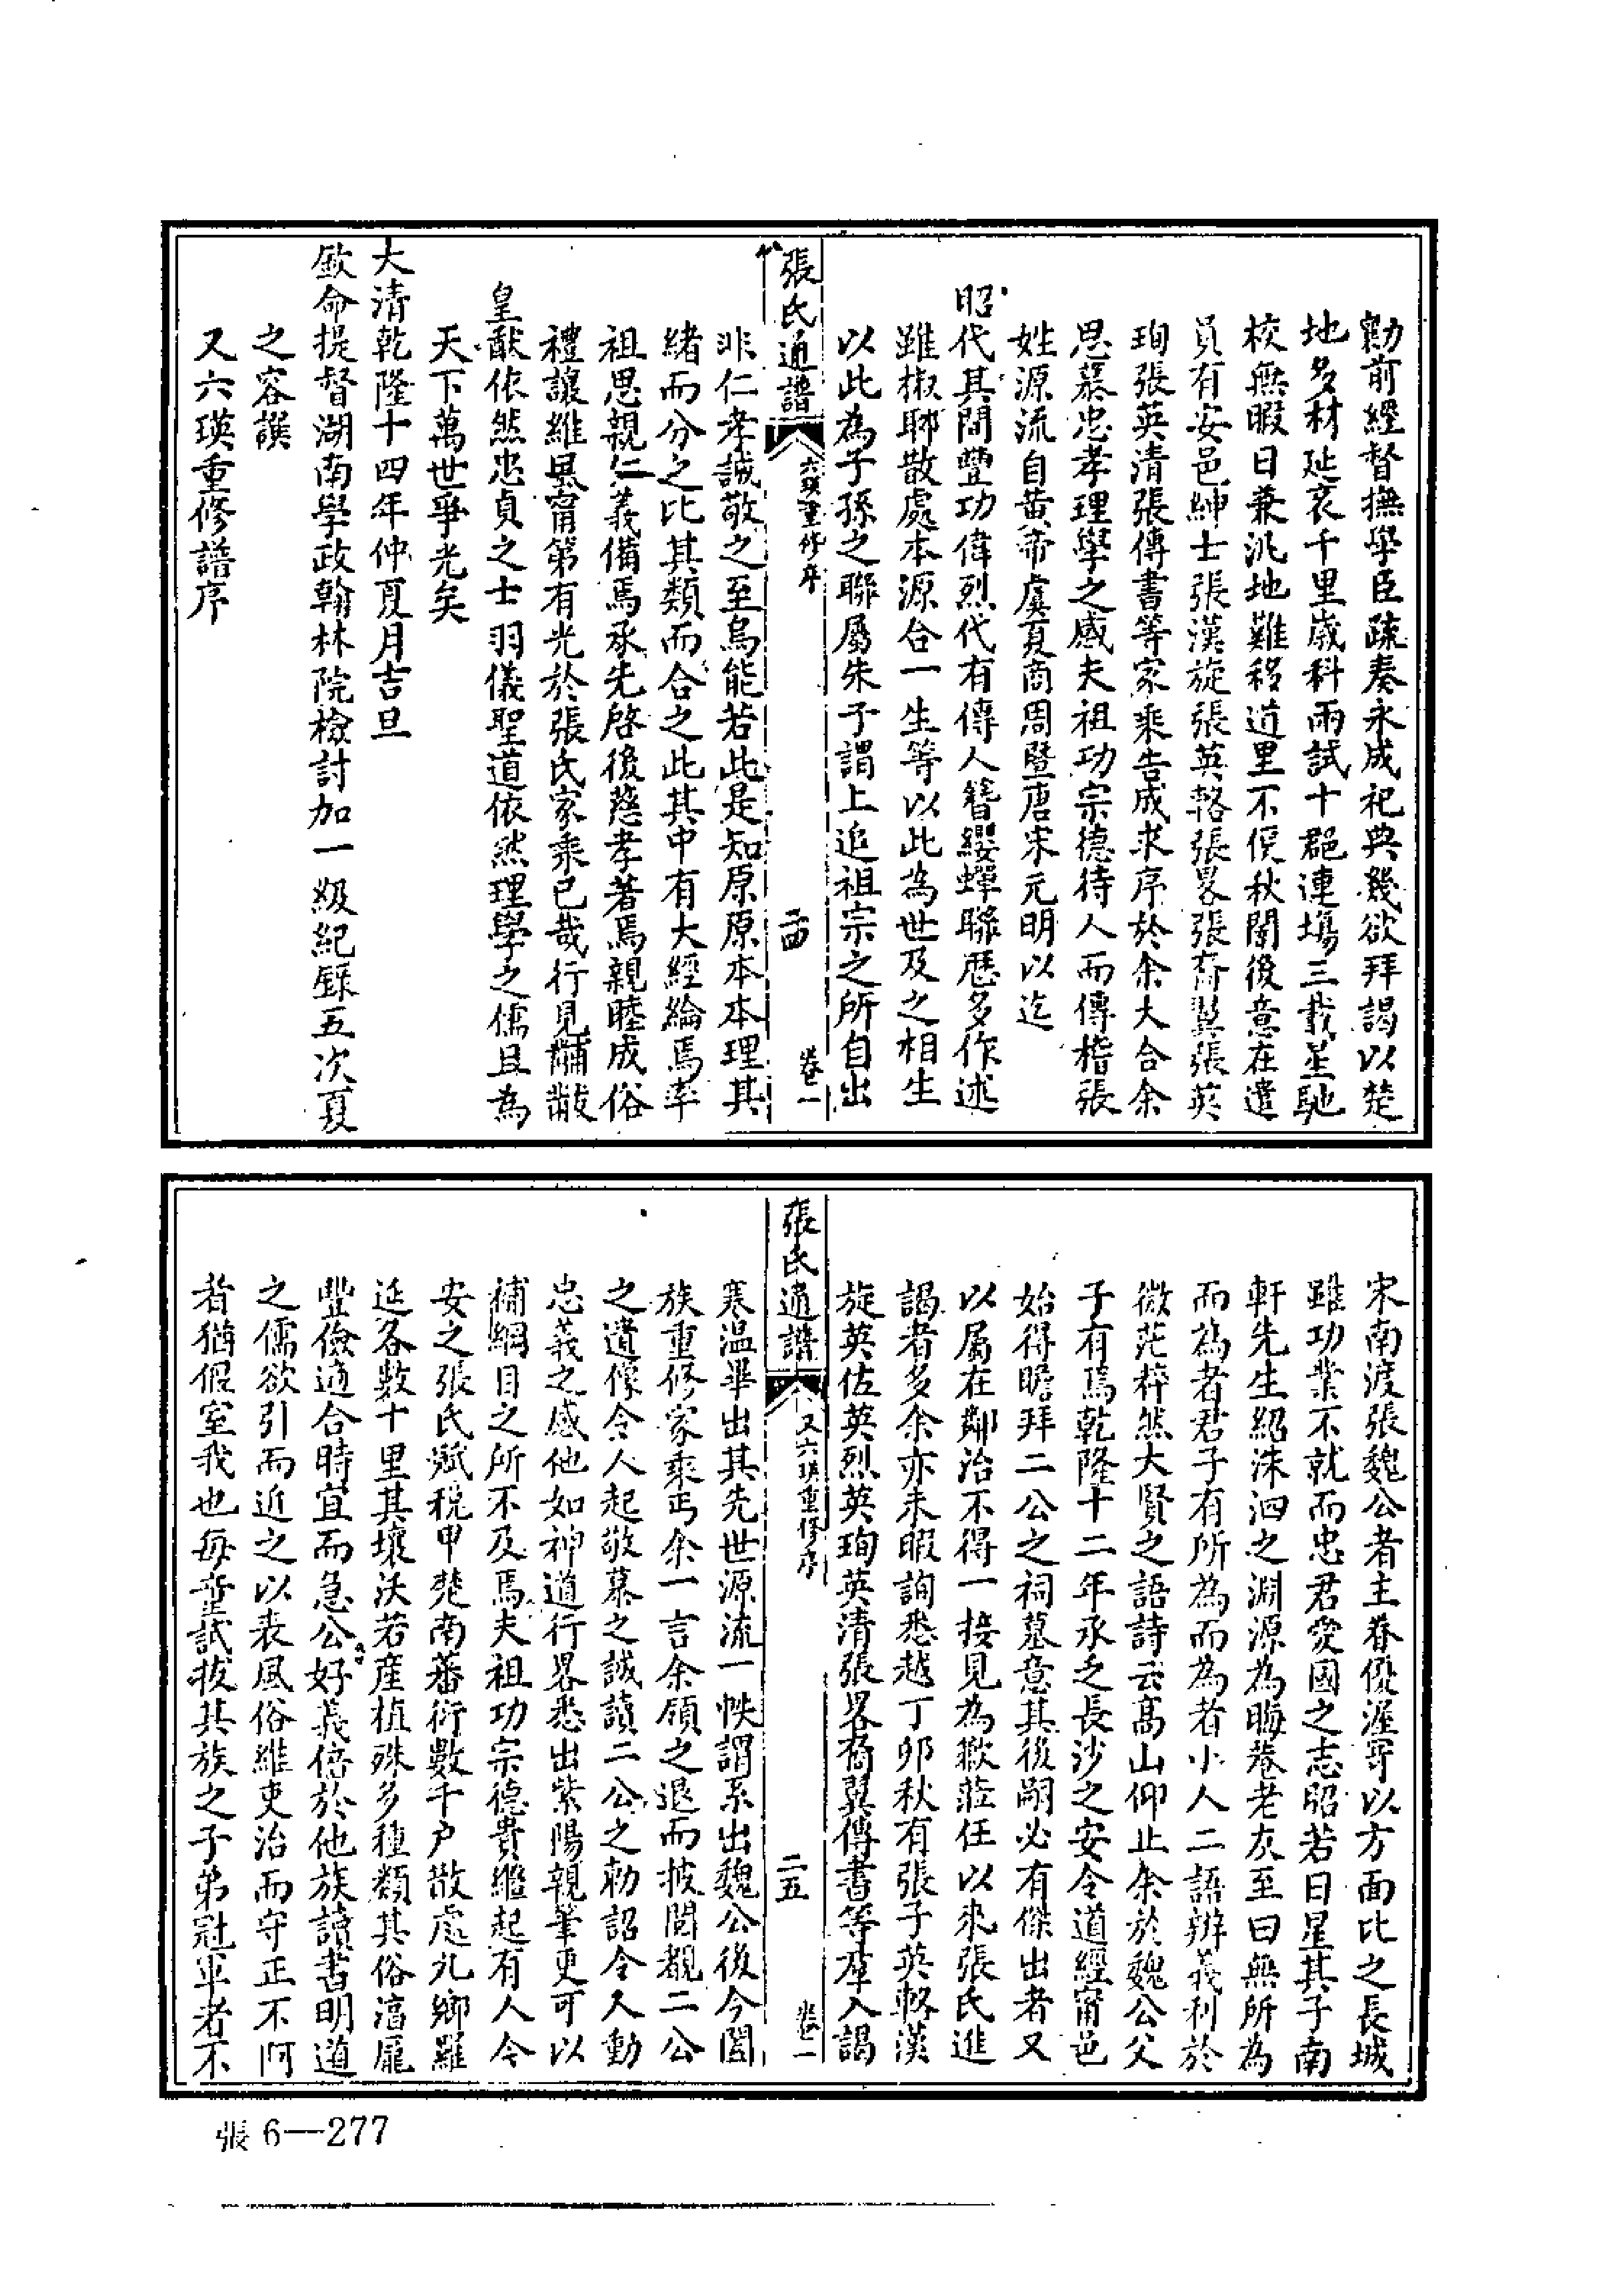 勷前經督撫學臣疏奏永成祀典幾欲拜謁以楚
地多材延袤千里歲科兩試十郡連塲三載星馳
校無暇日兼汎地難移道里不俟秋闈後意在遣
員有安邑紳士張漢旋張英輅張畧張裔翼張英
珣張英清張傳書等家乘告成求序於余大合余
思慕忠孝理學之感夫祖功宗德待人而傳稽張
姓源流自黃帝虞夏商周暨唐宋元明以迄
昭代其間豐功偉烈代有傳人簪纓蟬聯歷多作述
雖椒聊散處本源合一生等以此為世及之相生
以此為子孫之聯屬朱子謂上追祖宗之所自出
張氏通譜
六瑛重修序
二四
卷一
非仁孝誠敬之至烏能若此是知原原本本理其
緒而分之比其類而合之此其中有大經綸焉率
祖思親仁義備焉承先啓後慈孝著焉親睦成俗
禮讓維風甯第有光於張氏家乘已哉行見黼黻
皇猷依然忠貞之士羽儀聖道依然理學之儒且為
天下萬世爭光矣
大清乾隆十四年仲夏月吉旦
欽命提督湖南學政翰林院檢討加一級紀錄五次夏
之容譔
又六瑛重修譜序
宋南渡張魏公者主眷優渥寄以方面比之長城
雖功業不就而忠君愛國之志昭若日星其子南
軒先生紹洙泗之淵源為晦菴老友至曰無所為
而為者君子有所為而為者小人二語辨義利於
微茫粹然大賢之語詩云高山仰止余於魏公父
子有焉乾隆十二年承乏長沙之安令道經甯邑
始得瞻拜二公之祠墓意其後嗣必有傑出者又
以屬在鄰治不得一接見為歉蒞任以來張氏進
謁者多余亦未暇詢悉越丁卯秋有張子英輅漢
旋英佐英烈英珣英清張畧裔翼傳書等羣入謁
張氏通譜
又六瑛重修序
二五
卷一
寒溫畢出其先世源流一帙謂系出魏公後今闔
族重修家乘丐余一言余頷之退而披閱覩二公
之遺像令人起敬慕之誠讀二公之勅詔令人動
忠義之感他如神道行畧悉出紫陽親筆更可以
補綱目之所不及焉夫祖功宗德貴繼起有人今
安之張氏賦稅甲楚南蕃衍數千戶散處九鄉羅
延各數十里其壤沃若產植殊多種類其俗湻龎
豐儉適合時宜而急公好義倍於他族讀書明道
之儒欲引而近之以表風俗維吏治而守正不阿
者猶假室我也每童試拔其族之子弟冠軍者不
張6—277